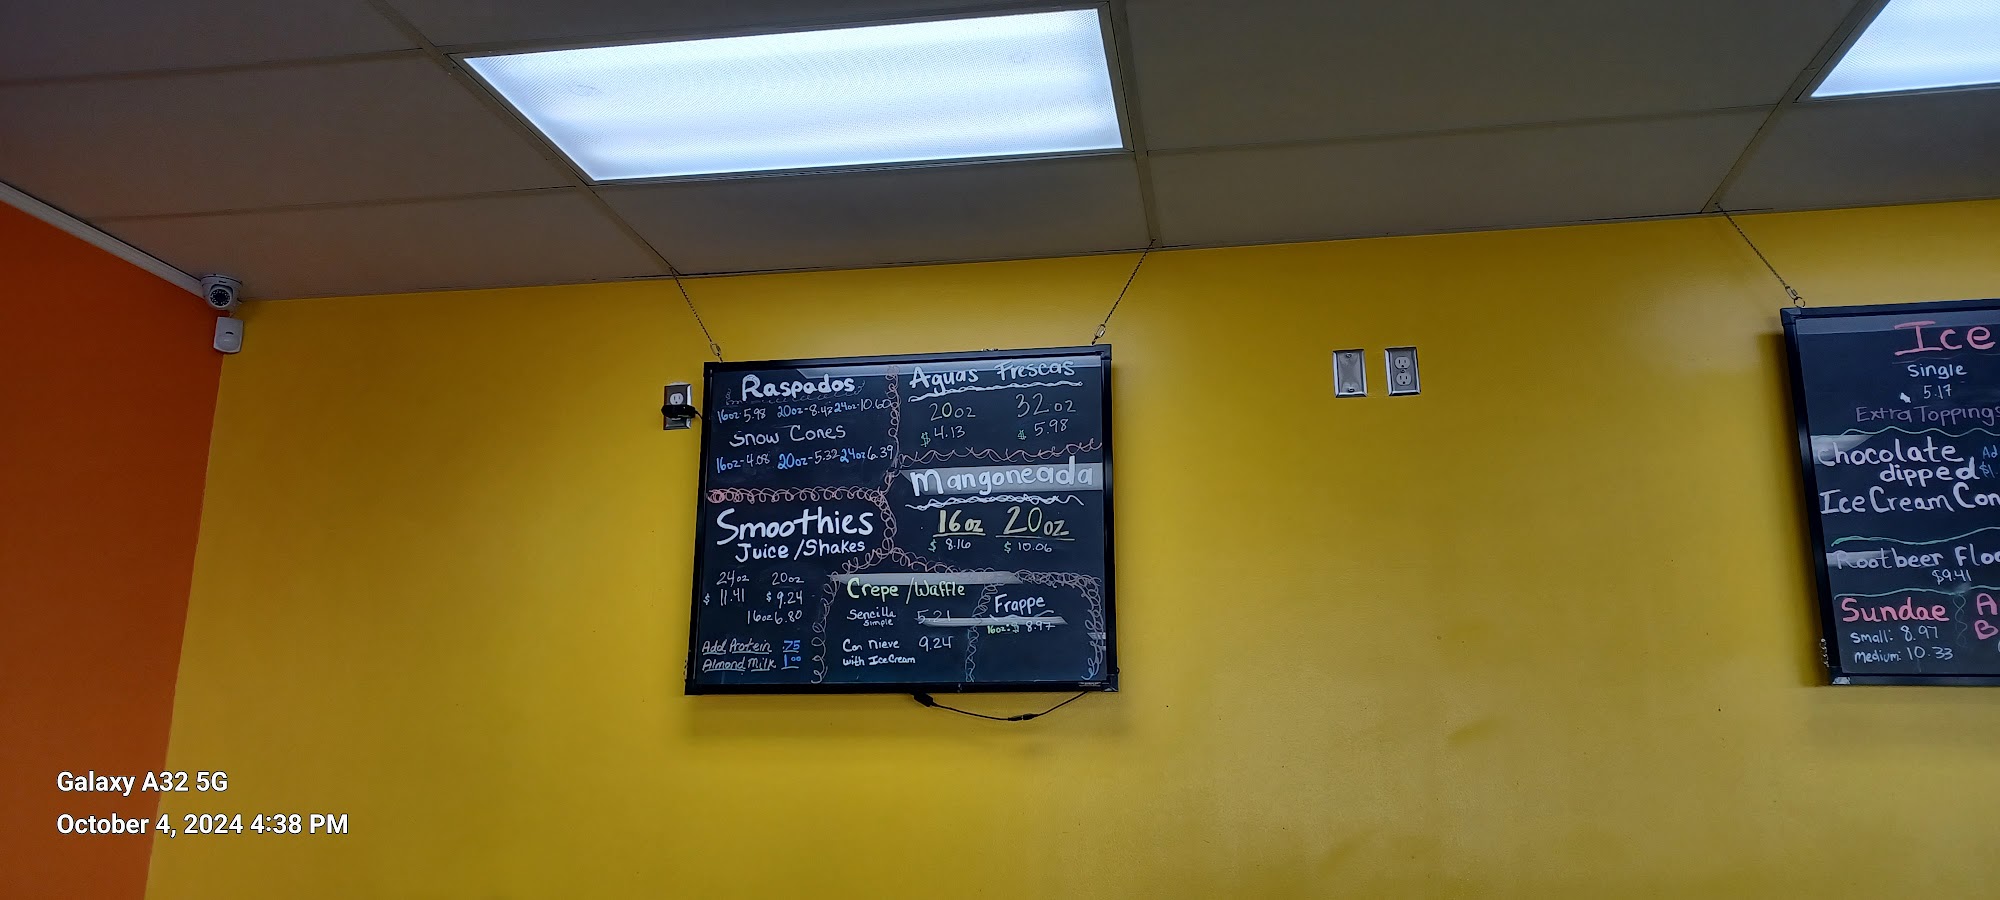 Raspados
16oz-5.98 20oz-8.43 24oz-10.60
Snow Cones
16oz-4.08 20oz-5.32 24oz 6.39
Aguas Frescas
20oz 32oz
$4.13 $5.98
Mangoneada
16oz 20oz
$8.16 $10.06
Smoothies
Juice/Shakes
24oz 20oz
$11.41 $9.24
16oz 6.80
Add Protein .75
Almond Milk 1.00
Crepe/Waffle
Sencilla 5.21
Simple
Con Nieve 9.24
with Ice Cream
Frappe
16oz: $8.97
Ice
Single
5.17
Extra Toppings
Chocolate Ad
dipped $1.
Ice Cream Con
Rootbeer Floa
$9.41
Sundae
Small: 8.97
Medium: 10.33
A
B
Galaxy A32 5G
October 4, 2024 4:38 PM